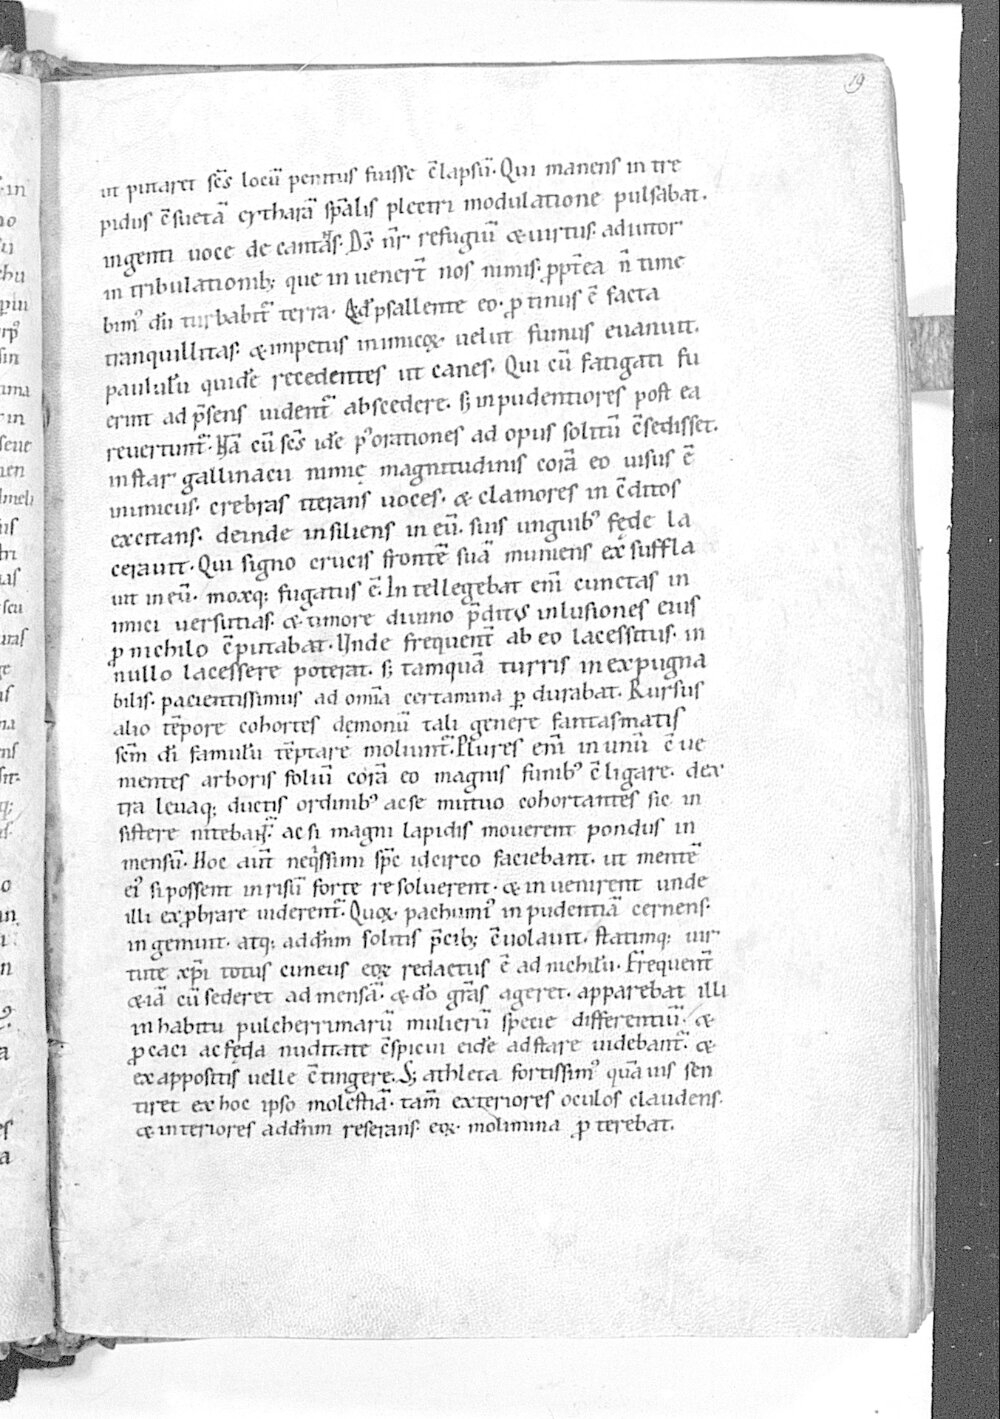 19
ut putaret scs̄ locū penitus fuisse c̄lapsū. Qui manens in tre
pidus c̄suetā cytharā sp̄alis plectri modulatione pulsabat.
ingenti uoce decantās. Ds̄ nr̄ refugiū & uirtus. adiutor
in tribulationib; que inuenert̄ nos nimis. ꝓpt̄ea n̄ time
bim᾽ dū turbabit᷑ terra. Qd̄ psallente eo. ꝓtinus ē facta
tranquillitas. & impetus inimicoꝝ. uelut fumus euanuit.
paululū quidē recedentes ut canes. Qui cū fatigati fu
erint ad p̄sens uident᷑ abscedere. s; inpudentiores post ea
reuertunt᷑. Nā cū scs̄ idē p᾽ orationes ad opus solitū c̄sedisset.
instar gallinacii nimię magnitudinis corā eo uisus ē
inimicus. crebras iterans uoces. & clamores inc̄ditos
excitans. deinde insiliens in eū. suis unguib᾽ fęde la
cerauit. Qui signo crucis frontē suā muniens exsuffla
uit in eū. moxq; fugatus ē. Intellegebat enī cunctas in
imici uersutias. & timore diuino p̄ditus inlusiones eius
ꝓ nichilo c̄putabat. Unde frequent̄ ab eo lacessitus. in
nullo lacessere poterat. s; tamquā turris inexpugna
bilis. pacientissimus ad omīa certamina ꝑdurabat. Rursus
alio tēpore cohortes demonū tali genere fantasmatis
scm̄ dī famulū tēptare moliunt᷑. Plures enī in unū c̄ue
nientes arboris foliū corā eo magnis funib᾽ c̄ligare. dex
tra leuaq; ductis ordinib᾽ ac se mutuo cohortantes sic in
sistere nitebant᷑. ac si magni lapidis mouerent pondus in
mensū. Hoc aut̄ neq̇ssimi sp̄c idcirco faciebant. ut mentē
ei᾽ si possent in risū forte resoluerent. & inuenirent unde
illi exꝓbrare uiderent᷑. Quoꝝ pachumi᾽ inpudentiā cernens.
ingemuit. atq; ad dnm̄ solitis p̄cib; c̄uolauit. statimq; uir
tute xp̄i totus cuneus eoꝝ redactus ē ad nichilū. Frequent̄
& iā cū sederet ad mensā. & dō grās ageret. apparebat illi
in habitu pulcherrimarū mulierū species differentiū. &
ꝓcaci ac fęda nuditate c̄spicui eidē adstare uidebant᷑. &
ex appositis uelle c̄tingere. S; athleta fortissim᾽ quāuis sen
tiret ex hoc ipso molestiā. tam̄ exteriores oculos claudens.
& interiores ad dnm̄ reserans. eoꝝ molimina ꝓterebat.